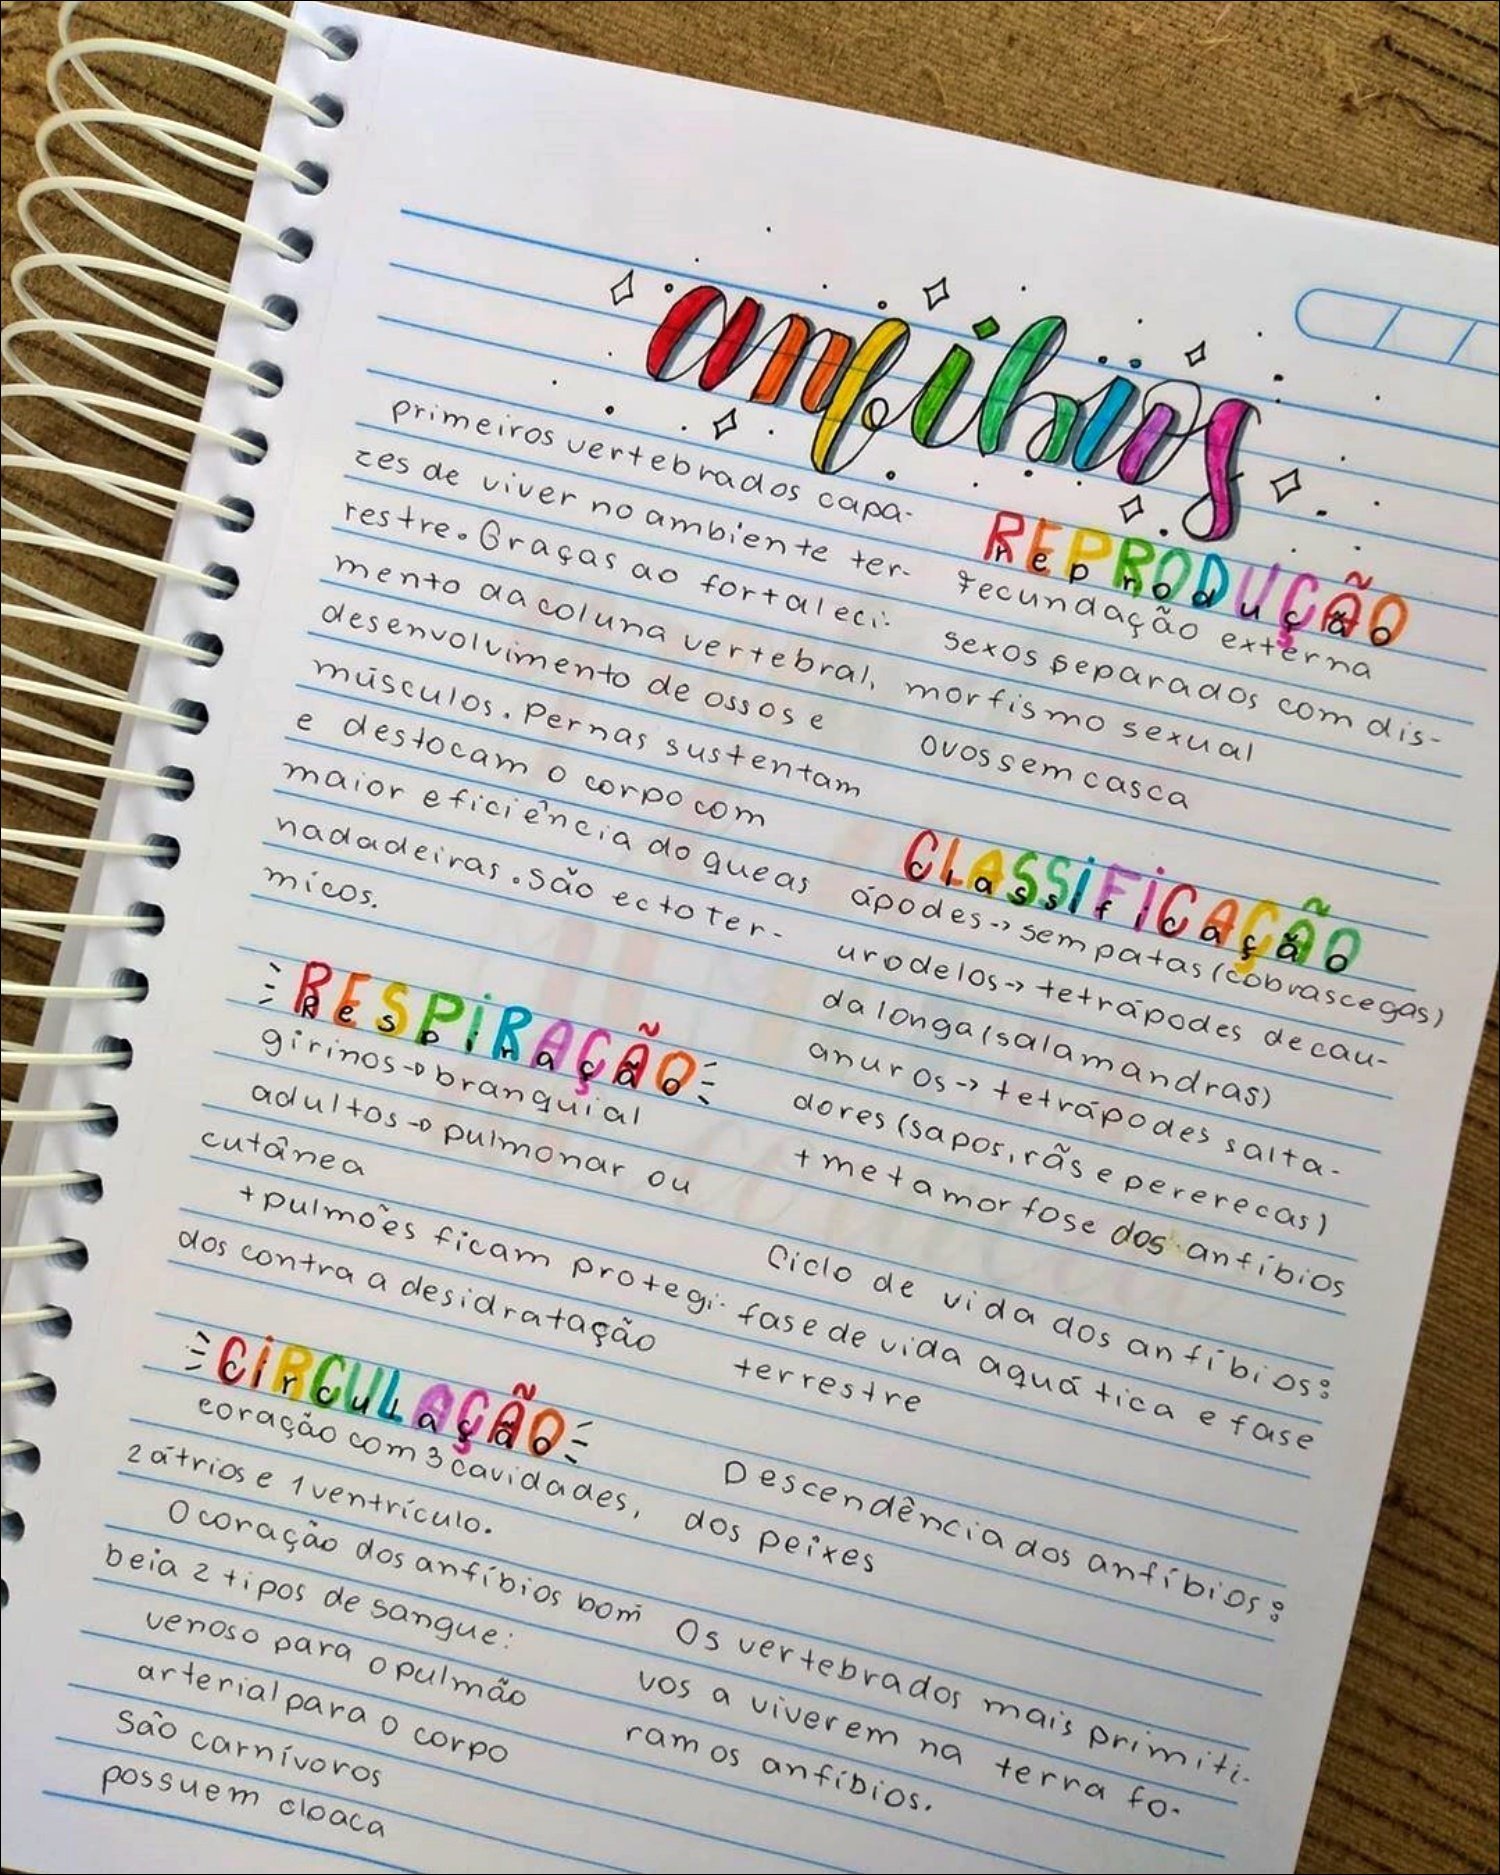 anfíbios
primeiros vertebrados capa-
zes de viver no ambiente ter-
restre. Graças ao fortaleci-
mento da coluna vertebral,
desenvolvimento de ossos e
músculos. Pernas sustentam
e deslocam o corpo com
maior eficiência do que as
nadadeiras. São ectotér-
micos.
RESPIRAÇÃO
Respiração
girinos→branquial
adultos→pulmonar ou
cutânea
+pulmões ficam protegi-
dos contra a desidratação
CIRCULAÇÃO
circulação
coração com 3 cavidades,
2 átrios e 1 ventrículo.
O coração dos anfíbios bom
beia 2 tipos de sangue:
venoso para o pulmão
arterial para o corpo
São carnívoros
possuem cloaca
REPRODUÇÃO
reprodução
fecundação externa
sexos separados com dis-
morfismo sexual
ovos sem casca
CLASSIFICAÇÃO
classificação
ápodes→sem patas (cobras cegas)
urodelos→tetrápodes de cau-
da longa (salamandras)
anuros→tetrápodes salta-
dores (sapos, rãs e pererecas)
+metamorfose dos anfíbios
Ciclo de vida dos anfíbios:
fase de vida aquática e fase
terrestre
Descendência dos anfíbios:
dos peixes
Os vertebrados mais primiti-
vos a viverem na terra fo-
ram os anfíbios.